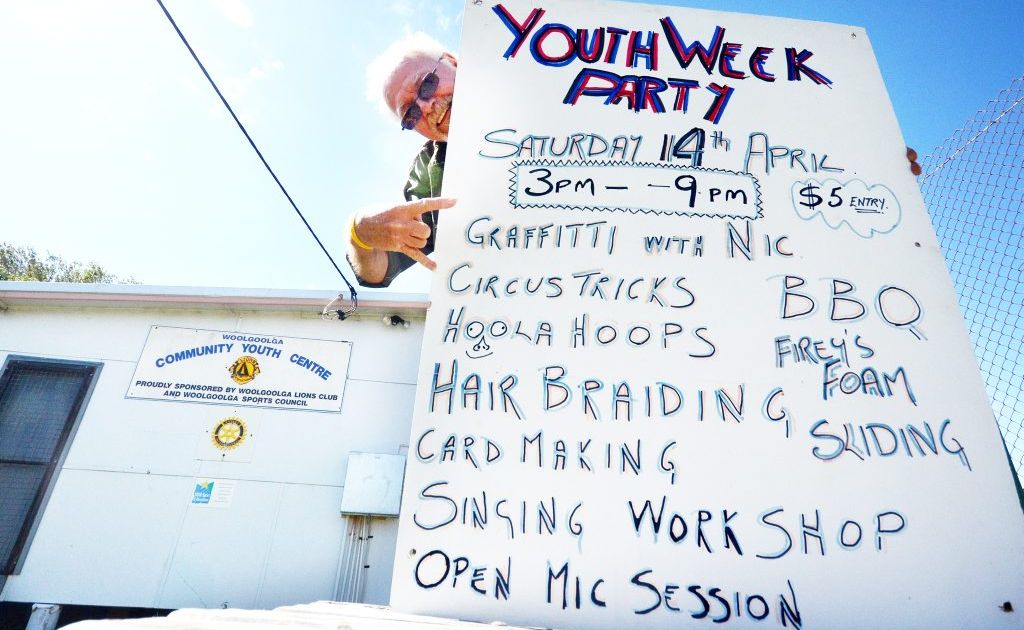 YOUTH WEEK
PARTY
SATURDAY 14th APRIL.
3PM - - 9 PM
$5 ENTRY.
GRAFFITTI WITH NIC
CIRCUS TRICKS
HOOLA HOOPS
HAIR BRAIDING
CARD MAKING
SINGING WORKSHOP
OPEN MIC SESSION
BBQ
FIREY'S
FOAM
SLIDING
WOOLGOOLGA
COMMUNITY YOUTH CENTRE
PROUDLY SPONSORED BY WOOLGOOLGA LIONS CLUB
AND WOOLGOOLGA SPORTS COUNCIL